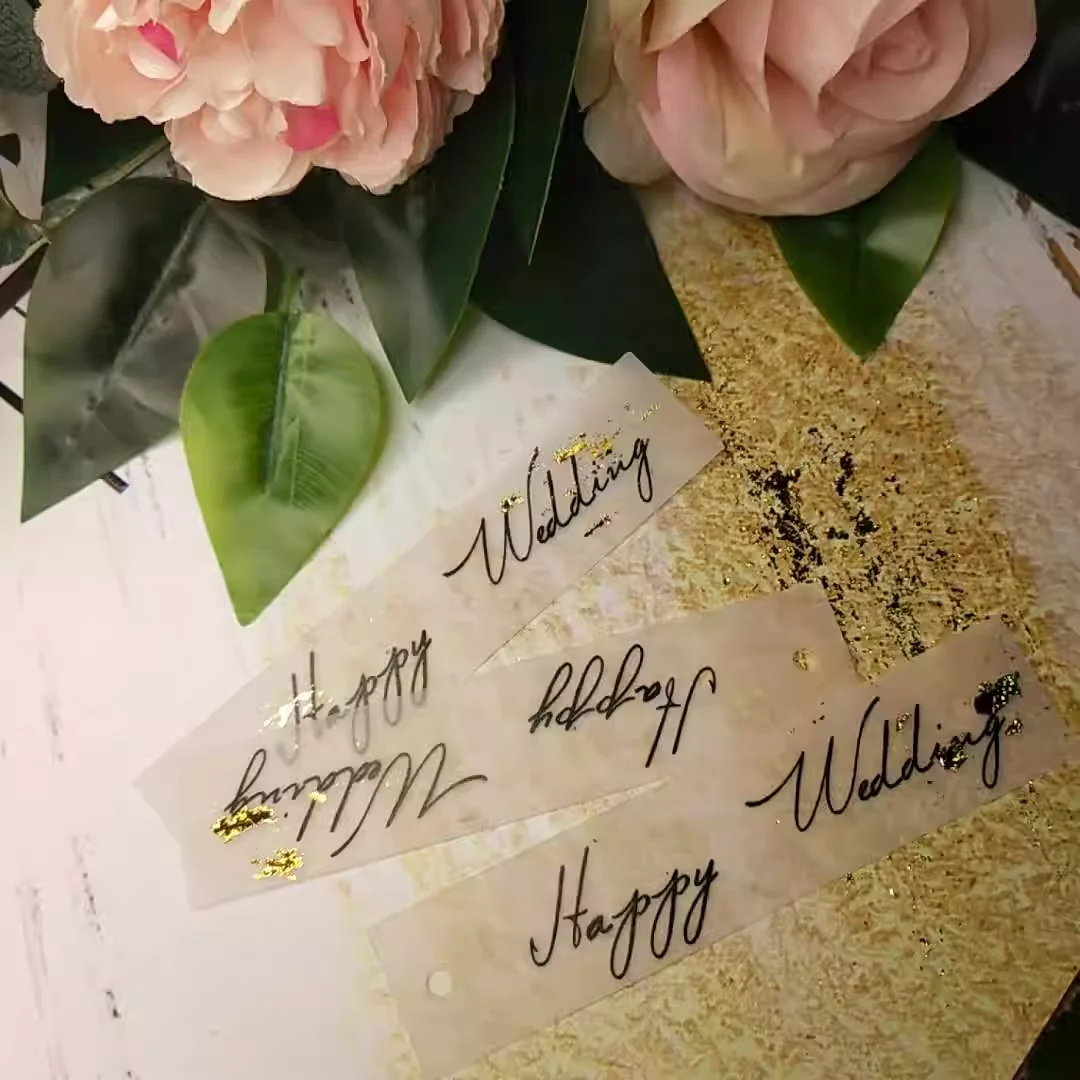 Happy Wedding
Happy Wedding
Happy Wedding